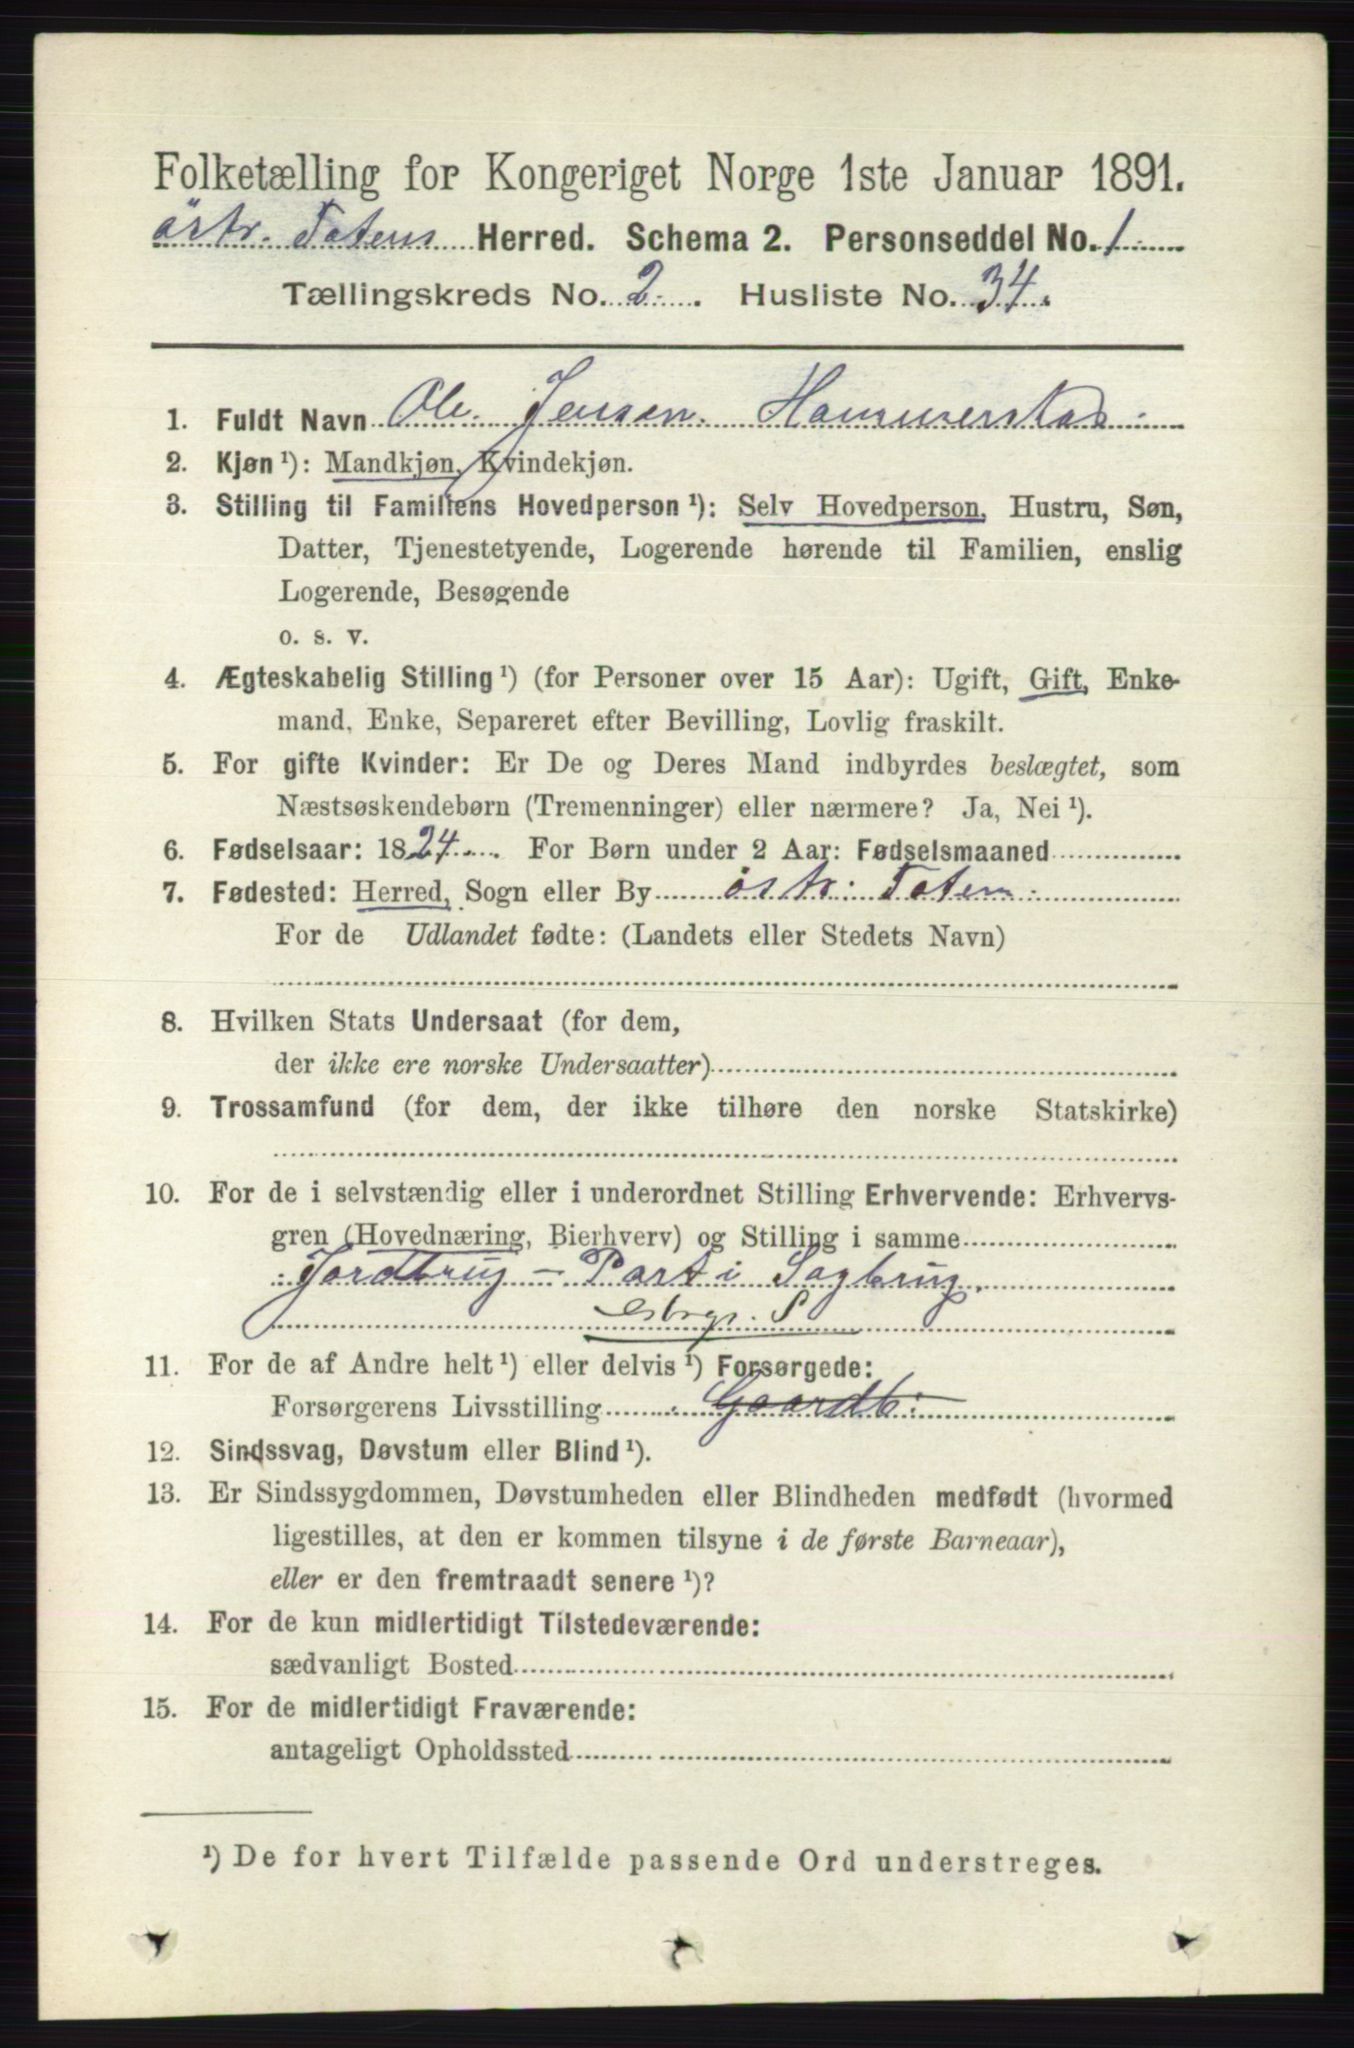 Folketælling for Kongeriget Norge 1ste Januar 1891.
östr. Totens Herred. Schema 2. Personseddel No. 1
Tællingskreds No. 2. Husliste No. 34.
1. Fuldt Navn Ole Jensen Hammerstad
2. Kjøn ¹): Mandkjøn, Kvindekjøn.
3. Stilling til Familiens Hovedperson ¹): Selv Hovedperson, Hustru, Søn,
Datter, Tjenestetyende, Logerende hørende til Familien, enslig
Logerende, Besøgende
o. s. v.
4. Ægteskabelig Stilling ¹) (for Personer over 15 Aar): Ugift, Gift, Enke-
mand, Enke, Separeret efter Bevilling, Lovlig fraskilt.
5. For gifte Kvinder: Er De og Deres Mand indbyrdes beslægtet, som
Næstsøskendebørn (Tremenninger) eller nærmere? Ja, Nei ¹).
6. Fødselsaar: 1824. For Børn under 2 Aar: Fødselsmaaned
7. Fødested: Herred, Sogn eller By östr: Toten:
For de Udlandet fødte: (Landets eller Stedets Navn)
8. Hvilken Stats Undersaat (for dem,
der ikke ere norske Undersaatter)
9. Trossamfund (for dem, der ikke tilhøre den norske Statskirke)
10. For de i selvstændig eller i underordnet Stilling Erhvervende: Erhvervs-
gren (Hovednæring, Bierhverv) og Stilling i samme
Jordbrug - Part i Sagbrug.
S
11. For de af Andre helt ¹) eller delvis ¹) Forsørgede:
Forsørgerens Livsstilling Gaardb:
12. Sindssvag, Døvstum eller Blind ¹).
13. Er Sindssygdommen, Døvstumheden eller Blindheden medfødt (hvormed
ligestilles, at den er kommen tilsyne i de første Barneaar),
eller er den fremtraadt senere ¹)?
14. For de kun midlertidigt Tilstedeværende:
sædvanligt Bosted
15. For de midlertidigt Fraværende:
antageligt Opholdssted
¹) De for hvert Tilfælde passende Ord understreges.